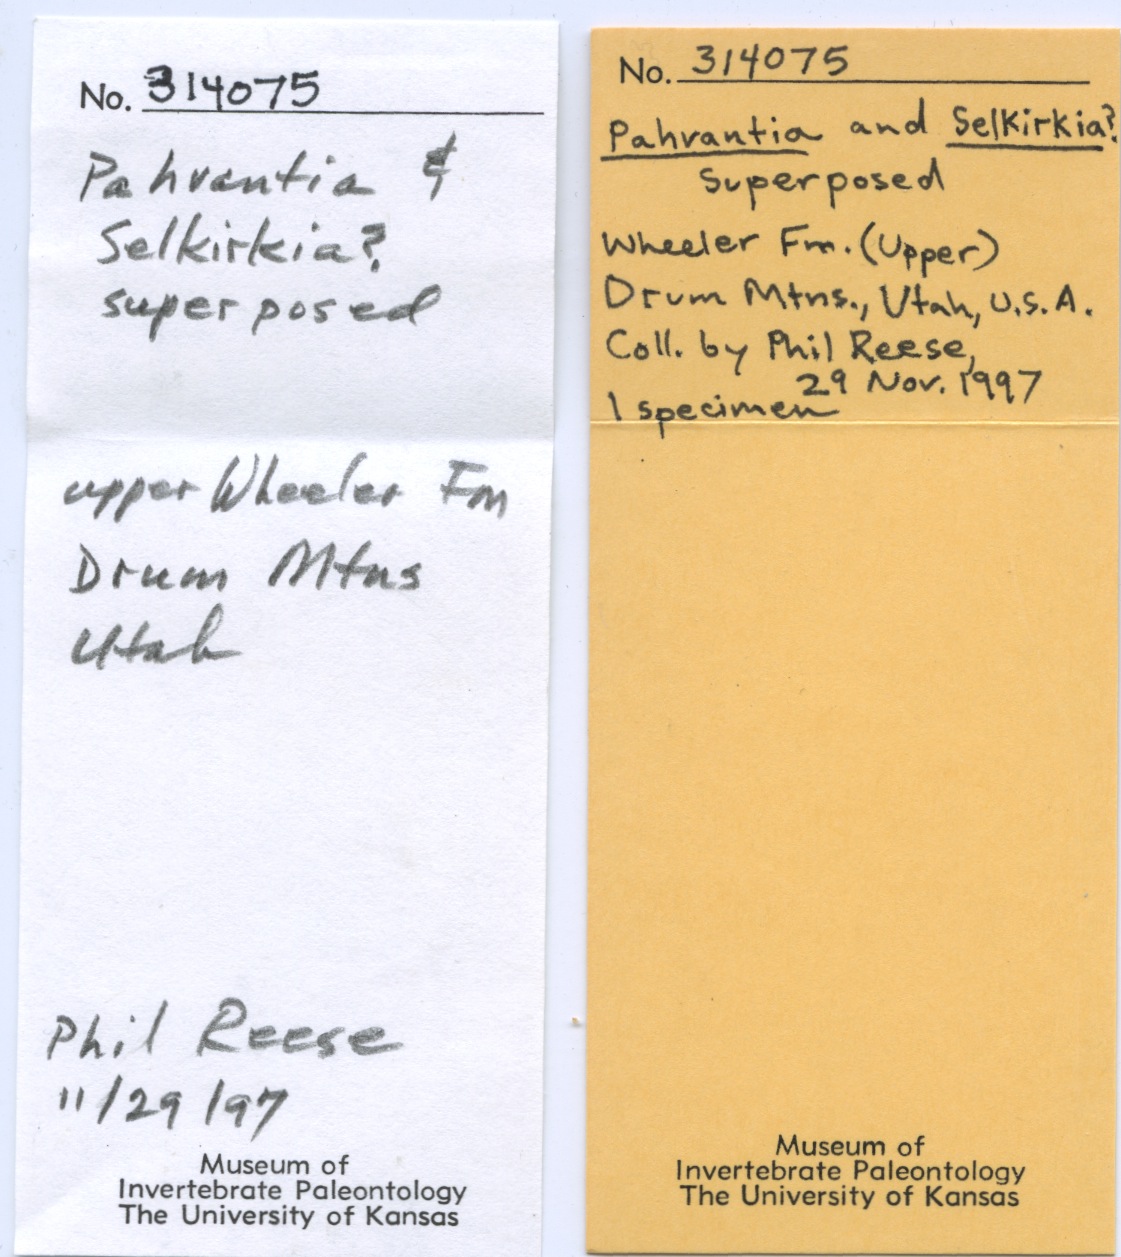 No. 314075
Pahvantia &
Selkirkia?
superposed
upper Wheeler Fm
Drum Mtns
Utah
Phil Reese
11/29/97
Museum of
Invertebrate Paleontology
The University of Kansas
No. 314075
Pahvantia and Selkirkia?
Superposed
Wheeler Fm. (Upper)
Drum Mtns., Utah, U.S.A.
Coll. by Phil Reese,
29 Nov. 1997
1 specimen
Museum of
Invertebrate Paleontology
The University of Kansas